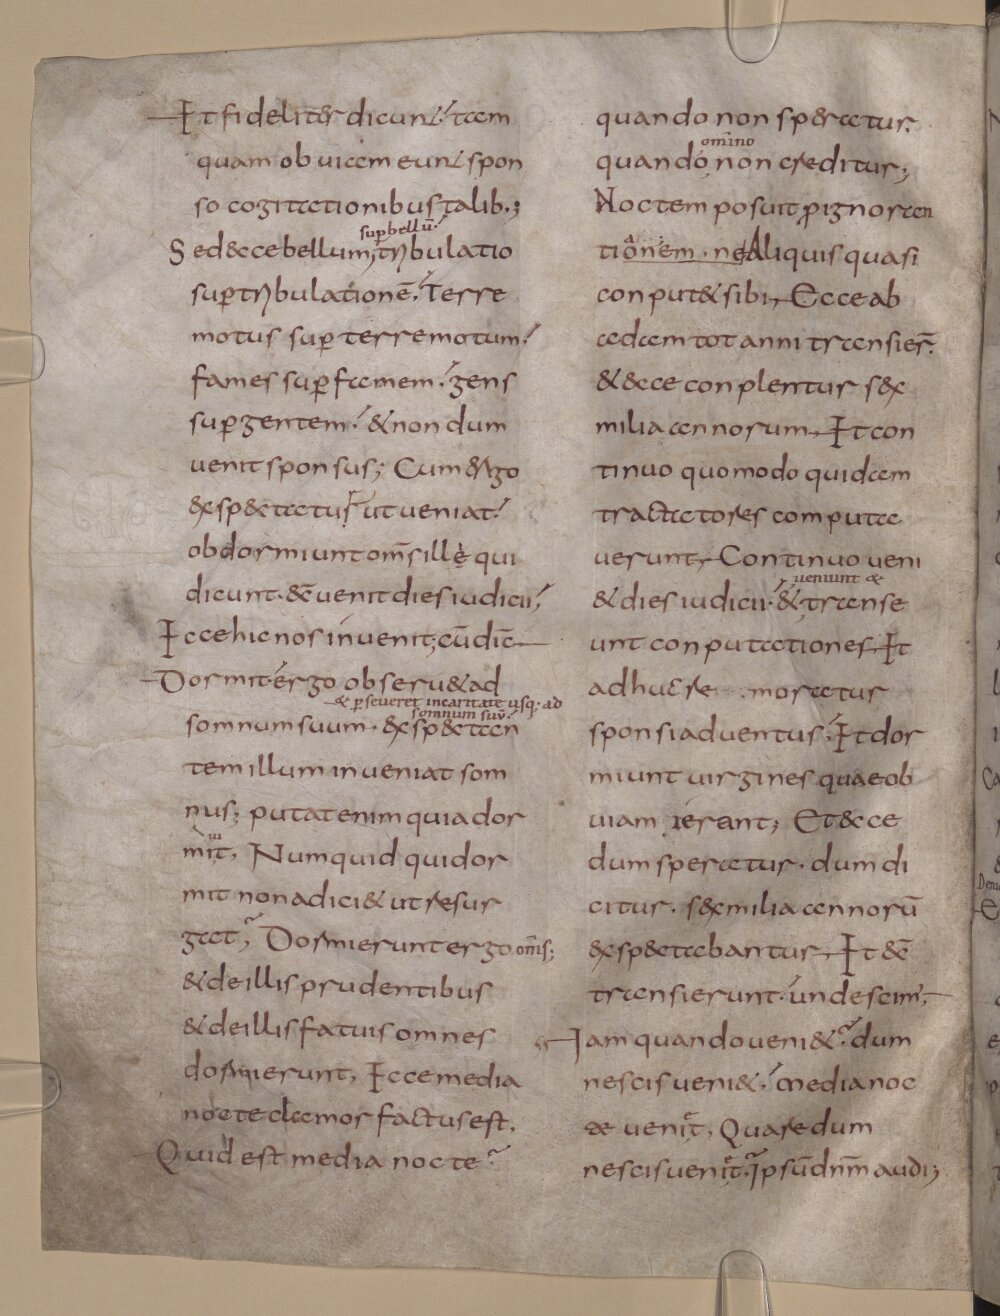 It fideliter dicunt tam
quam ob uicem eunt spon
so cogitationibus talib;
super bellū
Sed & ecce bellum, tribulatio
super tribulationē, terre
motus super terre motum,
fames super famem, gens
super gentem, & non dum
uenit sponsus; Cum ergo
expectatur ut ueniat,
obdormiunt om̄s ille qui
dicunt. &c̄ uenit dies iudicii,
Ecce hic nos inuenit; cū dic̄
Dormit ergo obseru& ad
& p̱seueret incaritate usq; ad
somnum suū
somnum suum. expectan
tem illum inueniat som
nus; putat enim quia dor
iu
mit, Numquid qui dor
mit non adici& ut resur
gat; Dormierunt ergo om̄s;
& de illis prudentibus
& de illis fatuis omnes
dormierunt, Ecce media
nocte clamor factus est,
Quid est media nocte
quando non speratur.
om̄ino
quando non creditur;
Noctem posuit p̱ ignoran
tionem. ne Aliquis quasi
conput& sibi, Ecce ab
adam tot anni transier̄.
& ecce conplentur sex
milia annorum, Et con
tinuo quomodo quidam
tractatores computa
uerunt, Continuo ueni
ueniunt &
& dies iudicii. & transe
unt conputationes, Et
adhuc re moratur
sponsi aduentus, Et dor
miunt uirgines quae ob
uiam ierant; Et ecce
dum speratur. dum di
citur. sex milia annorū
expectabantur, Et &c̄
transierunt. unde scim̄,
Iam quando ueni& dum
nescis ueni&, media noc
te uenit, Quare dum
nescis uenit. ipsū dn̄m audi;